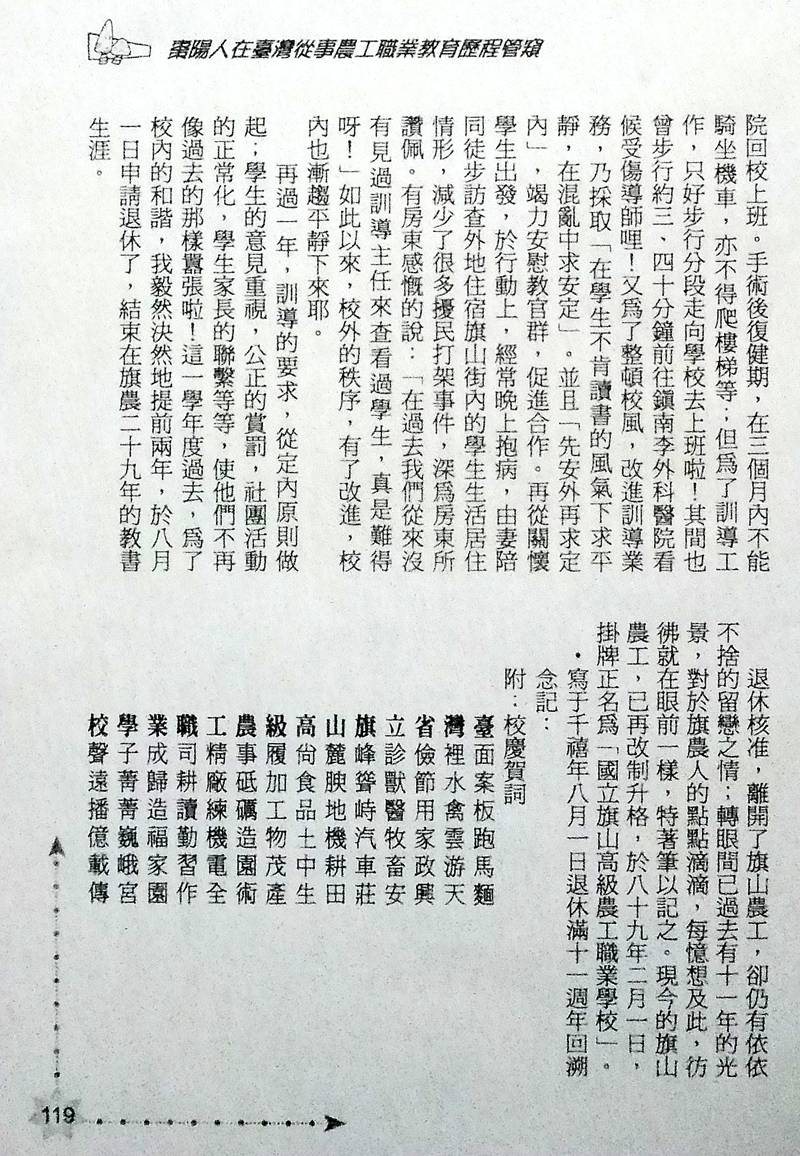 棗陽人在臺灣從事農工職業教育歷程管窺
院回校上班。手術後復健期，在三個月內不能
騎坐機車，亦不得爬樓梯等；但為了訓導工
作，只好步行分段走向學校去上班啦！其間也
曾步行約三、四十分鐘前往鎮南李外科醫院看
候受傷導師哩！又為了整頓校風，改進訓導業
務，乃採取「在學生不肯讀書的風氣下求平
靜，在混亂中求安定」。並且「先安外再求定
內」，竭力安慰教官群，促進合作。再從關懷
學生出發，於行動上，經常晚上抱病，由妻陪
同徒步訪查外地住宿旗山街內的學生生活居住
情形，減少了很多擾民打架事件，深為房東所
讚佩。有房東感慨的說：「在過去我們從來沒
有見過訓導主任來查看過學生，真是難得
呀！」如此以來，校外的秩序，有了改進，校
內也漸趨平靜下來耶。
再過一年，訓導的要求，從定內原則做
起；學生的意見重視，公正的賞罰，社團活動
的正常化，學生家長的聯繫等等，使他們不再
像過去的那樣囂張啦！這一學年度過去，為了
校內的和諧，我毅然決然地提前兩年，於八月
一日申請退休了，結束在旗農二十九年的教書
生涯。
退休核准，離開了旗山農工，卻仍有依依
不捨的留戀之情；轉眼間已過去有十一年的光
景，對於旗農人的點點滴滴，每憶想及此，彷
彿就在眼前一樣，特著筆以記之。現今的旗山
農工，已再改制升格，於八十九年二月一日，
掛牌正名為「國立旗山高級農工職業學校」。
・寫于千禧年八月一日退休滿十一週年回溯
念記：
附：校慶賀詞
臺面案板跑馬麵
灣裡水禽雲游天
省儉節用家政興
立診獸醫牧畜安
旗峰聳峙汽車莊
山麓腴地機耕田
高尙食品土中生
級履加工物茂產
農事砥礪造園術
工精廠練機電全
職司耕讀勤習作
業成歸造福家園
學子菁菁巍峨宮
校聲遠播億載傳
119